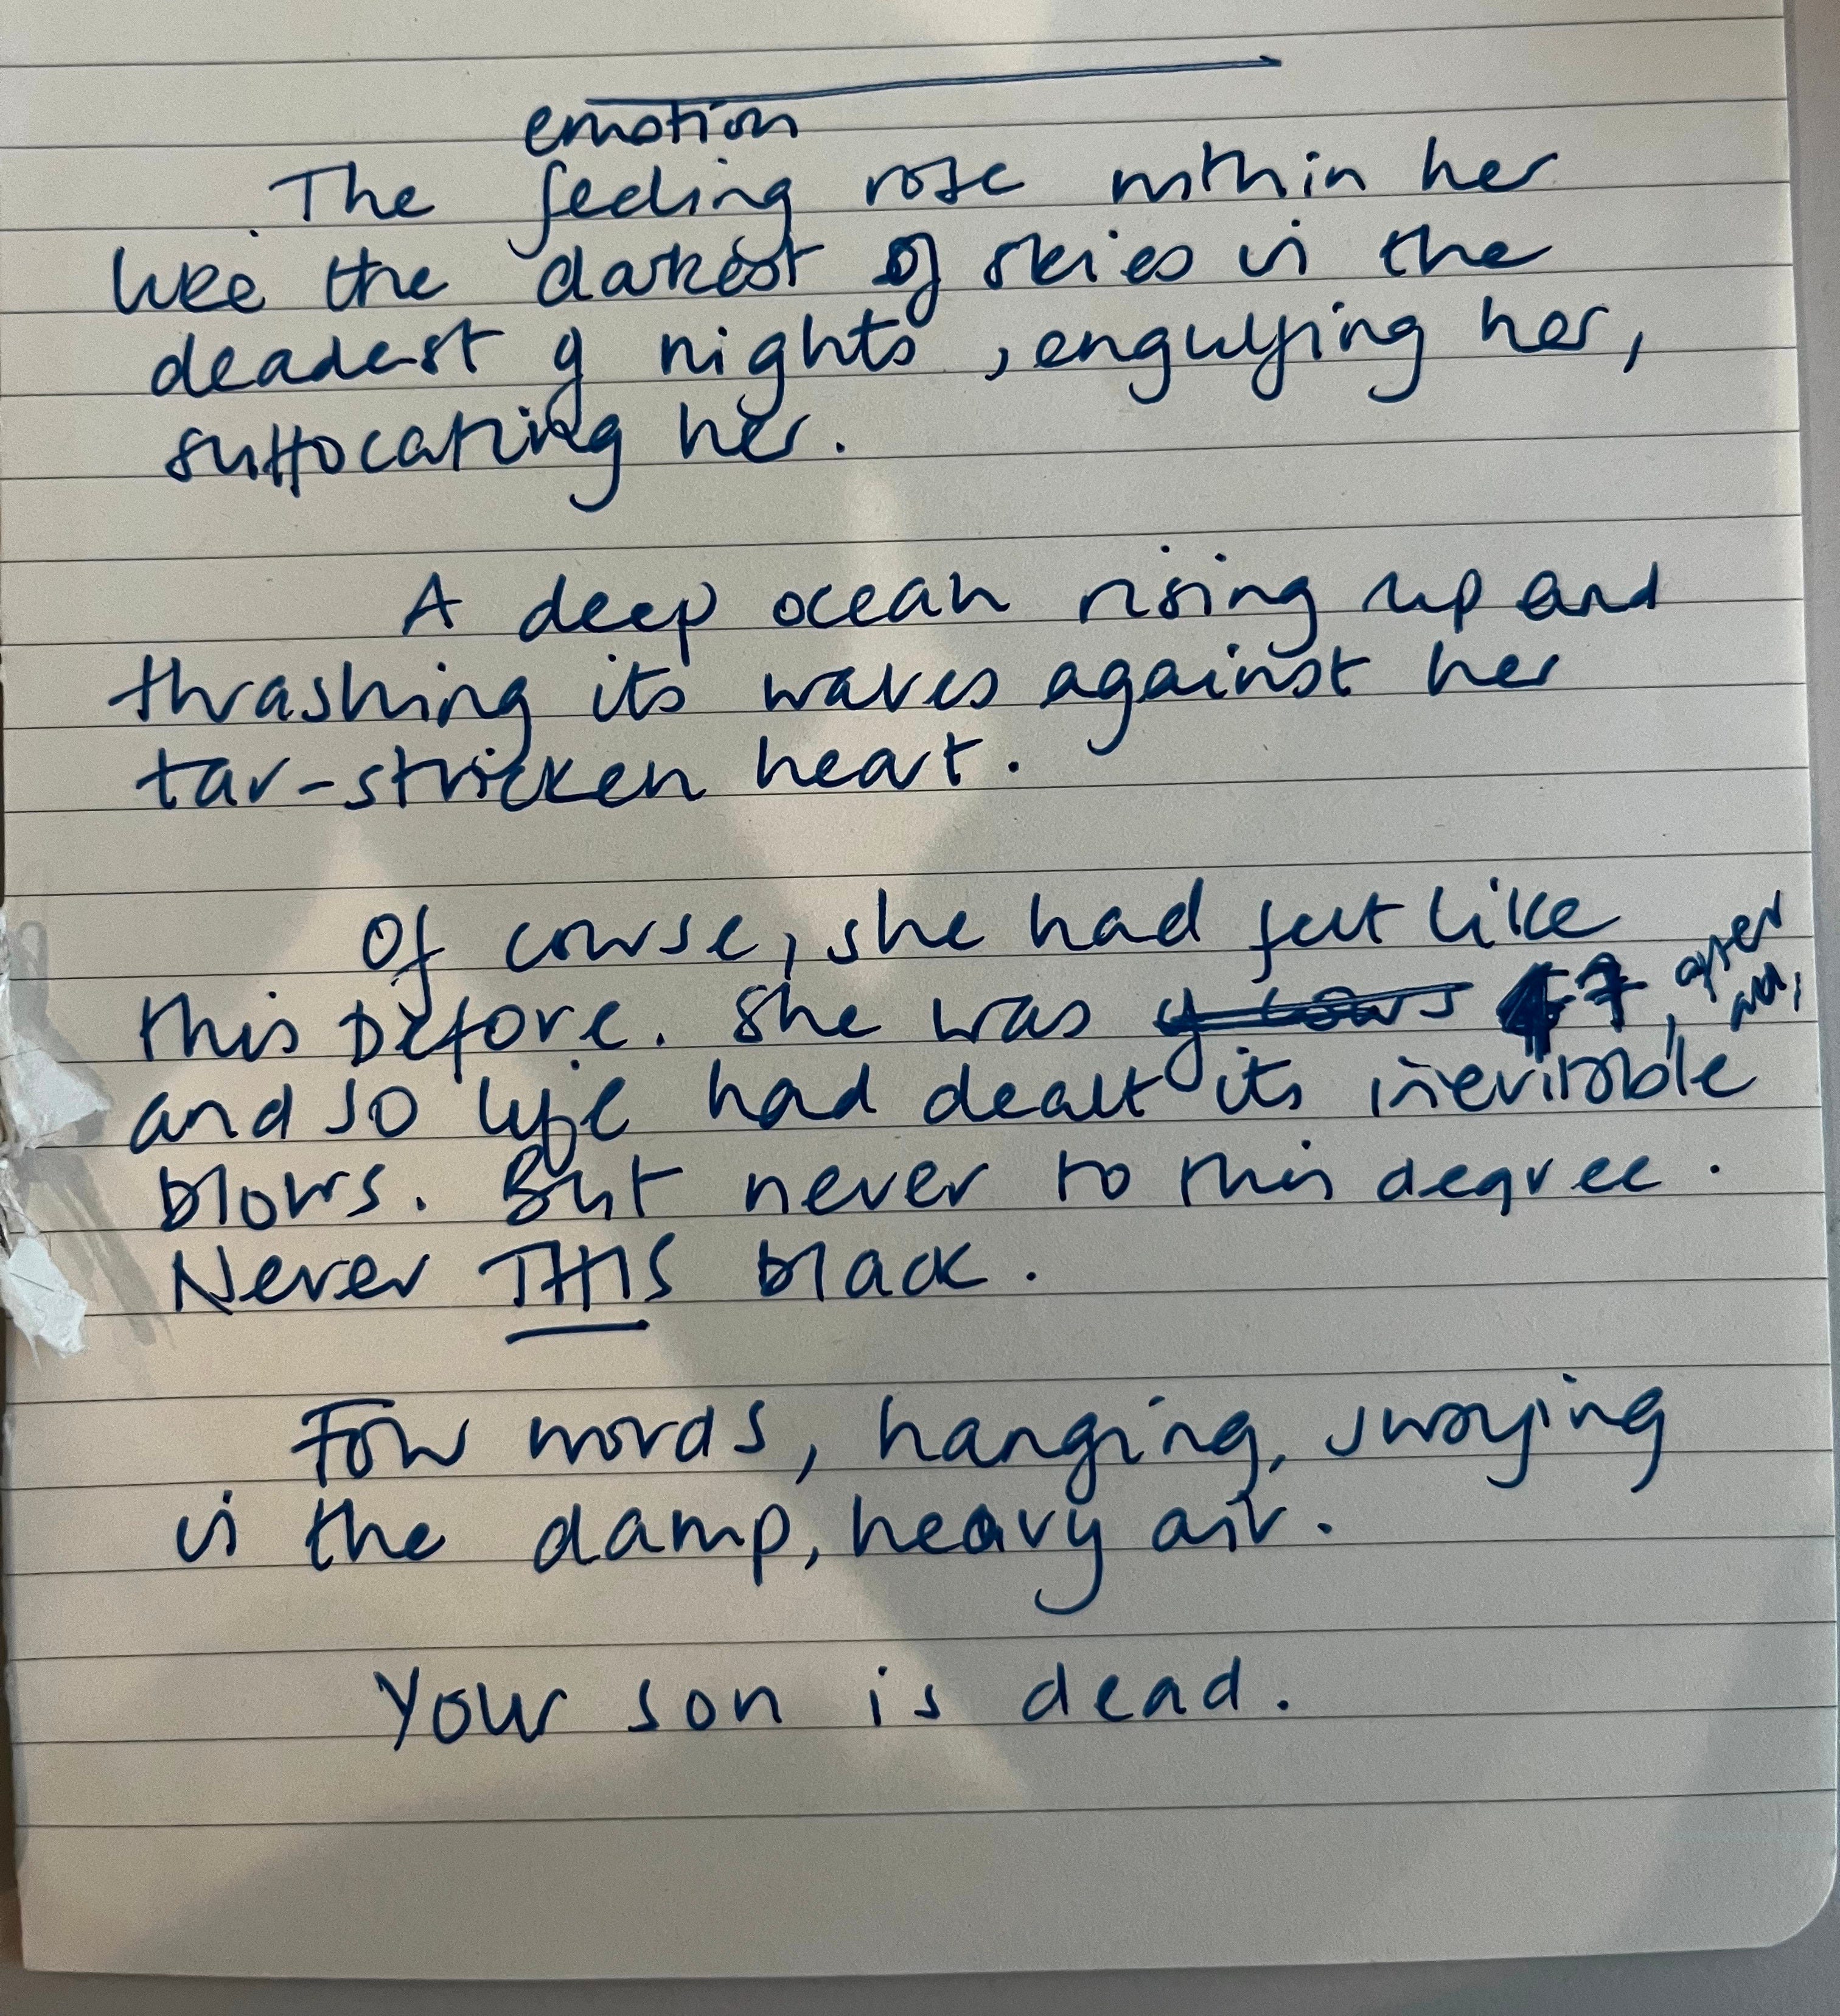 emotion
The feeling rose within her
like the darkest of skies in the
deadest of nights, engulfing her,
suffocating her.
A deep ocean rising up and
thrashing its waves against her
tar-stricken heart.
Of course, she had felt like
this before. She was 47, after all,
and so life had dealt its inevitable
blows. But never to this degree.
Never THIS black.
Four words, hanging, swaying
in the damp, heavy air.
Your son is dead.